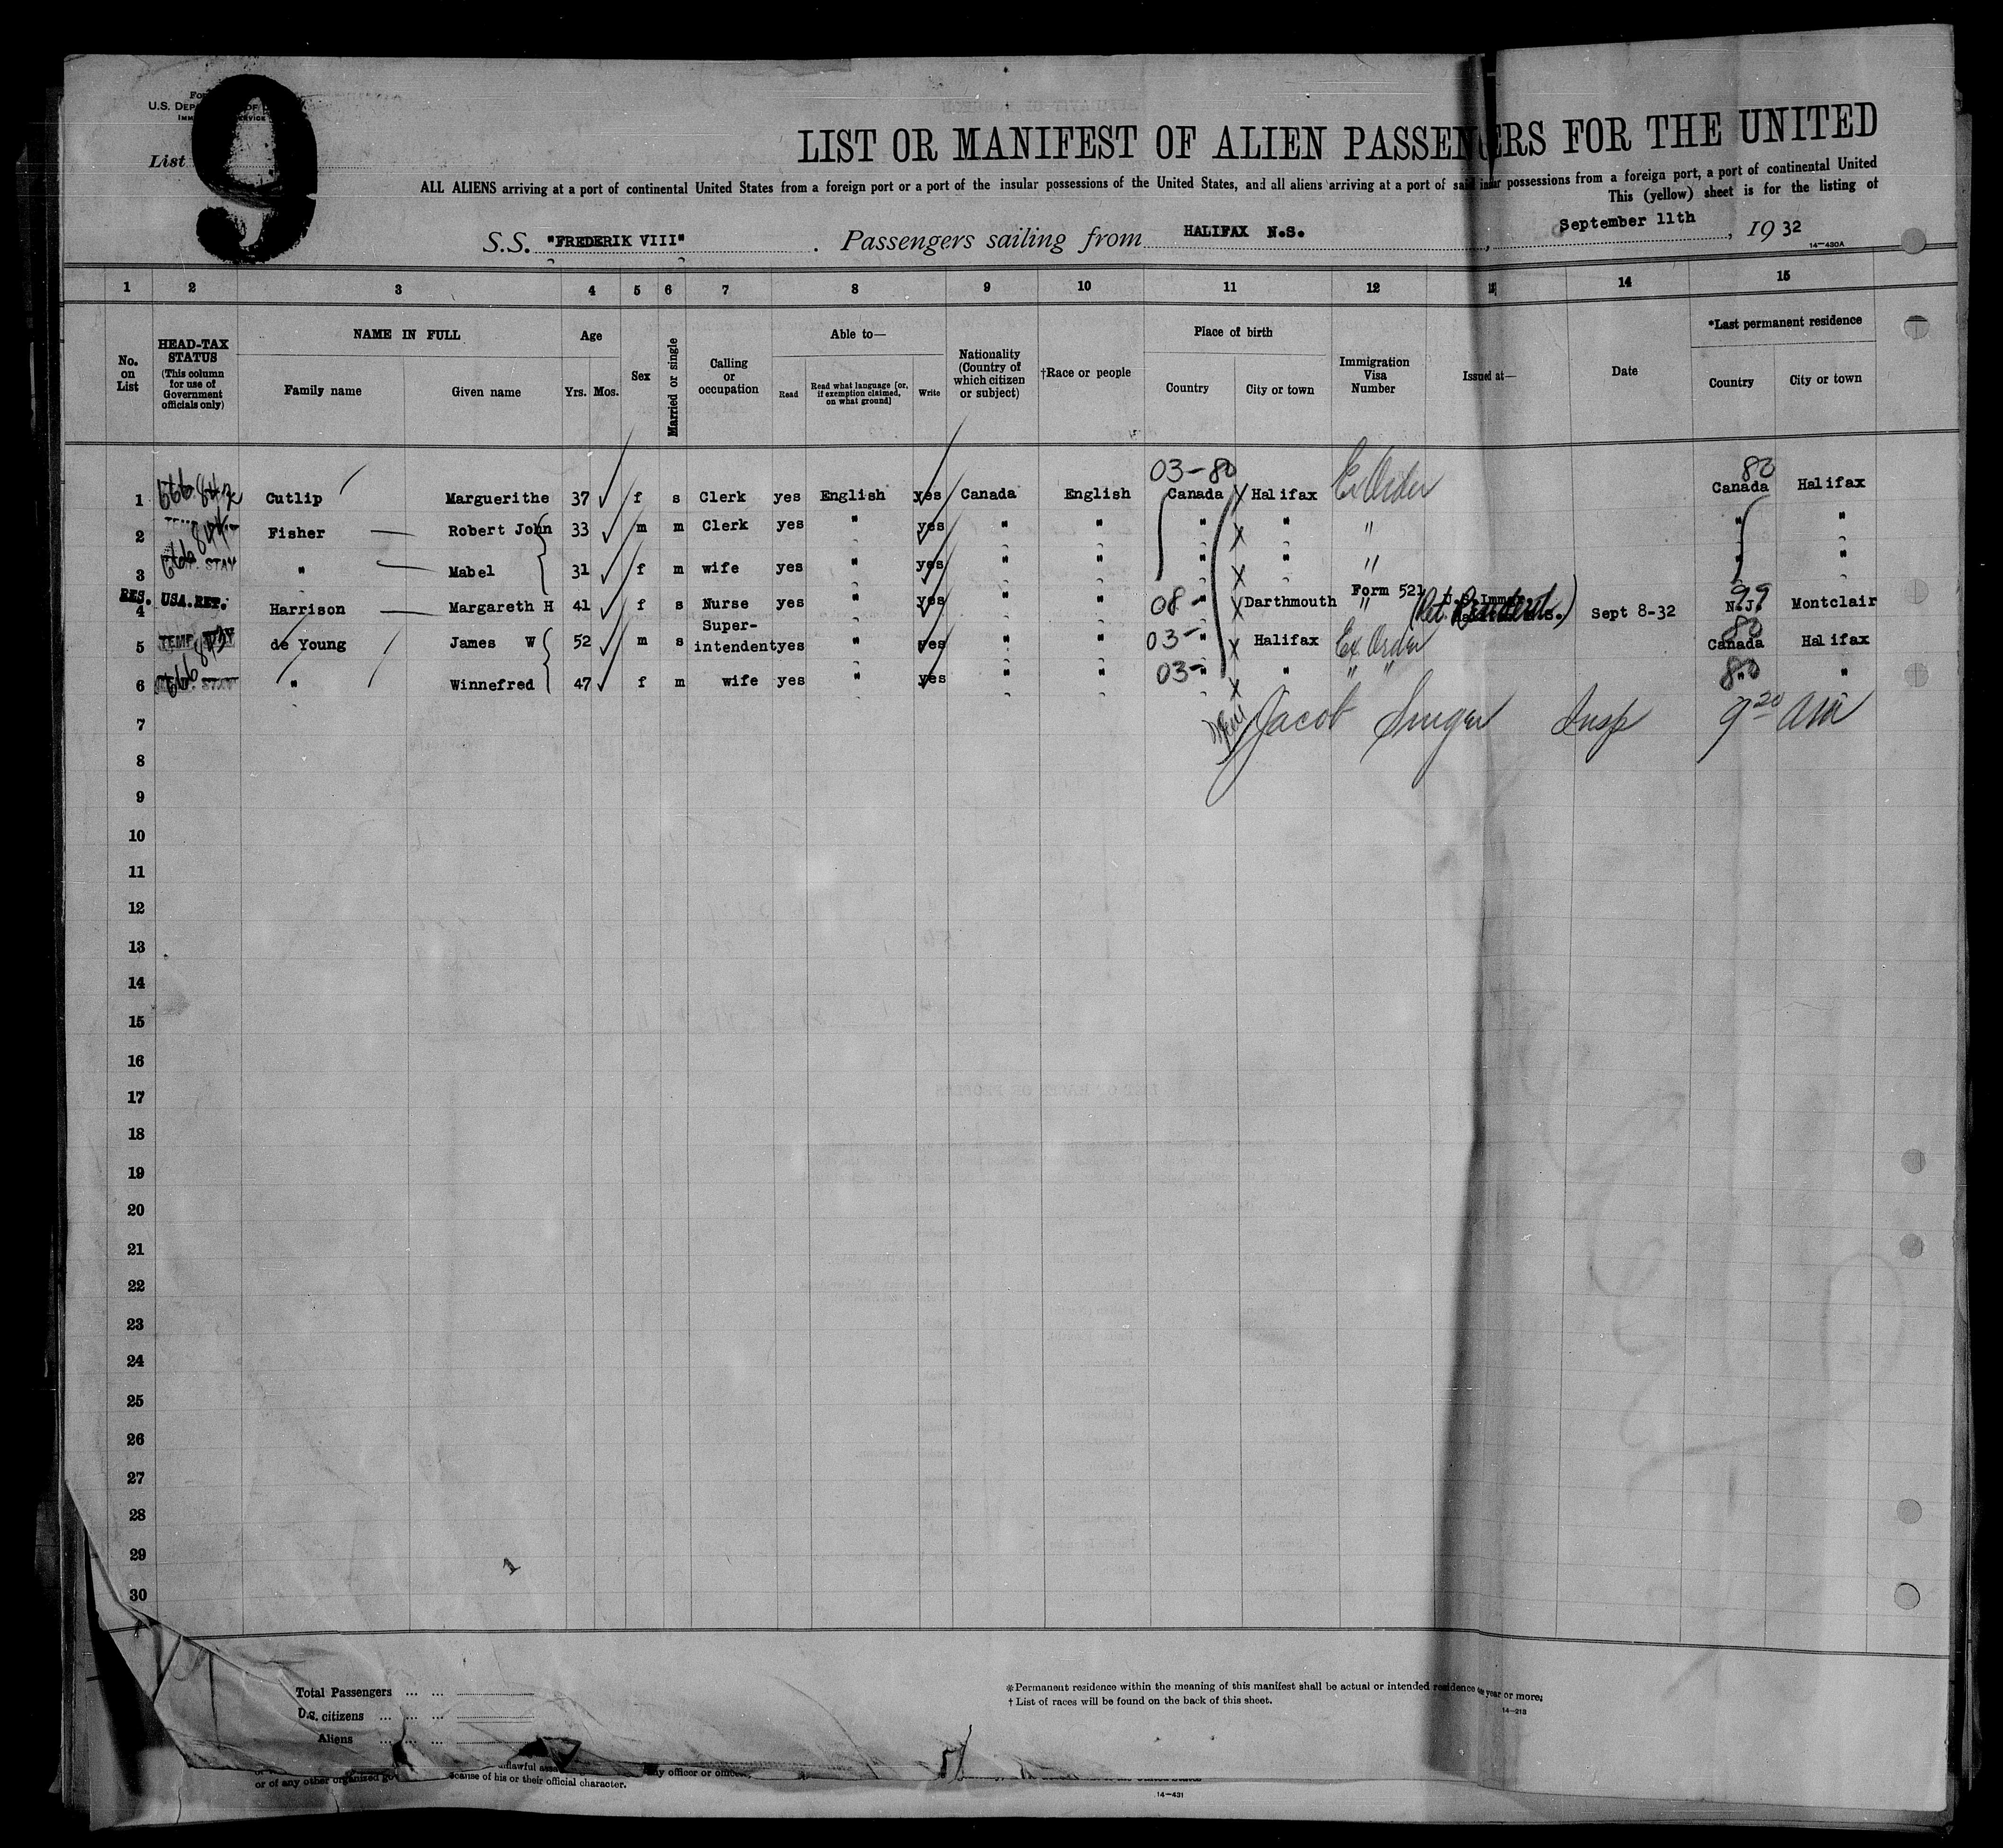 9
List
LIST OR MANIFEST OF ALIEN PASSENGERS FOR THE UNITED
ALL ALIENS arriving at a port of continental United States from a foreign port or a port of the insular possessions of the United States, and all aliens arriving at a port of said insular possessions from a foreign port, a port of continental United
This (yellow) sheet is for the listing of
S.S. "FREDERIK VIII" . Passengers sailing from HALIFAX N.S. , September 11th , 19 32
14—430A
1 2 3 4 5 6 7 8 9 10 11 12 13 14 15
No. on List
HEAD-TAX STATUS (This column for use of Government officials only)
NAME IN FULL
Family name Given name
Age
Yrs. Mos.
Sex
Married or single
Calling or occupation
Able to—
Read Read what language [or, if exemption claimed, on what ground] Write
Nationality (Country of which citizen or subject)
†Race or people
Place of birth
Country City or town
Immigration Visa Number
Issued at—
Date
*Last permanent residence
Country City or town
03-80 80
1 Cutlip Marguerithe 37 f s Clerk yes English yes Canada English Canada Halifax Ex Order Canada Halifax
2 Fisher Robert John 33 m m Clerk yes " yes " " " " " " "
3 STAY " Mabel 31 f m wife yes " yes " " " " " " "
4 RES. USA.RET. Harrison Margareth H 41 f s Nurse yes " yes " " 08- " Darthmouth Form 521 " Sept 8-32 99 N.J. Montclair
5 TEMP. de Young James W 52 m s Super-intendent yes " yes " " 03- " Halifax Ex Order 80 Canada Halifax
6 STAY " Winnefred 47 f m wife yes " yes " " 03- " " " " 80 " "
7 Jacob Singer Insp 9 20 AM
8
9
10
11
12
13
14
15
16
17
18
19
20
21
22
23
24
25
26
27
28
29
30
1
Total Passengers ... ...
U.S. citizens ... ... ...
Aliens ... ... ...
*Permanent residence within the meaning of this manifest shall be actual or intended residence one year or more.
†List of races will be found on the back of this sheet.
14—213
any officer or
or of any other organized cause of his or their official character.
14—431